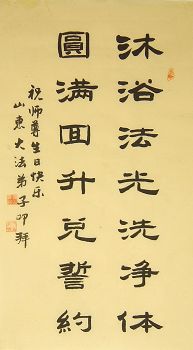 沐浴法光洗净体
圓满回升兑誓約
祝师尊生日快乐
山东大法弟子叩拜